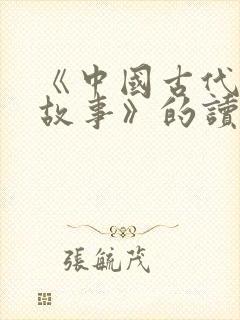 《中國古代
故事》的讀
張毓茂